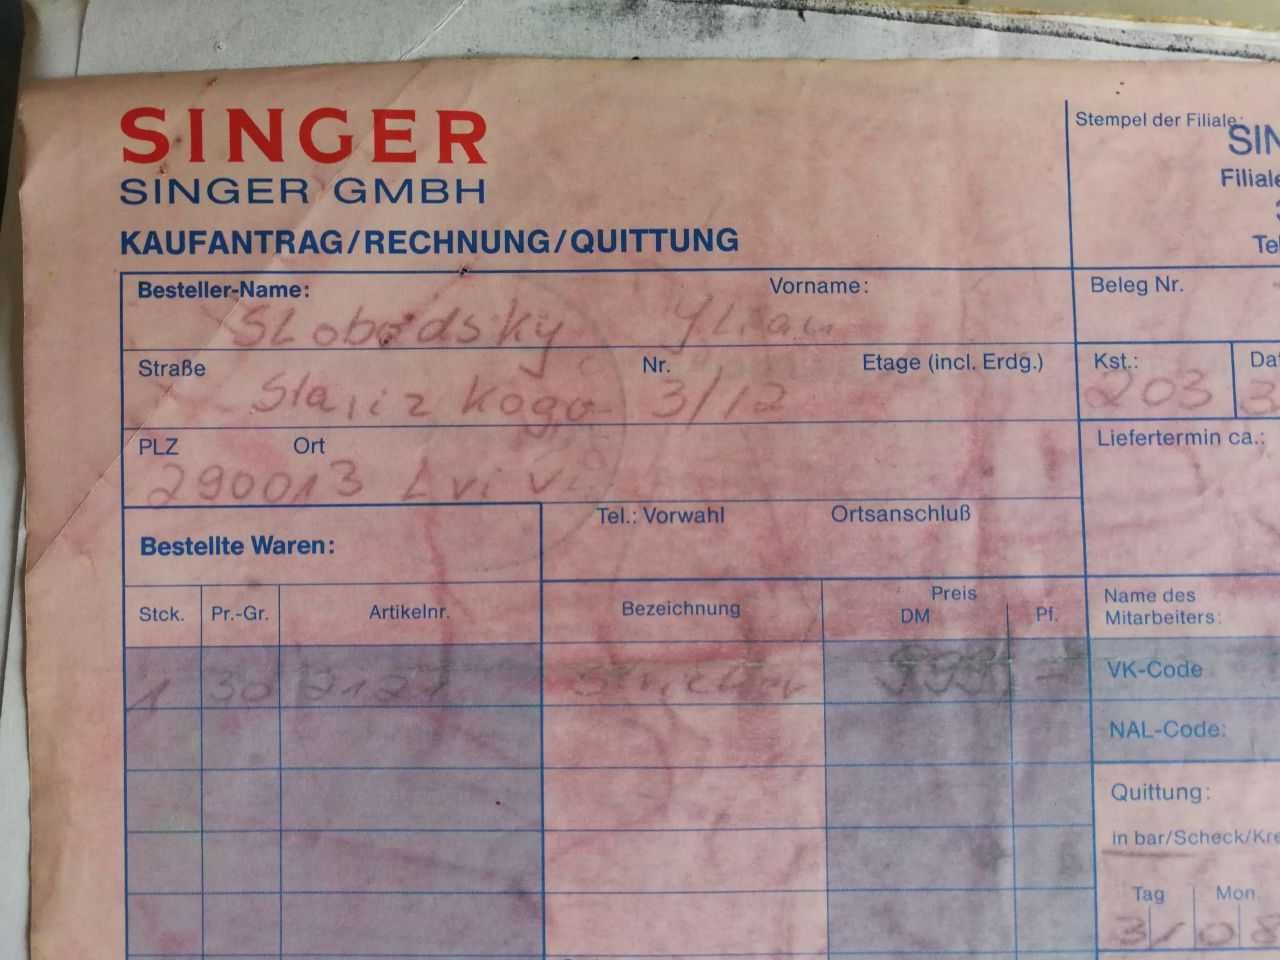 SINGER
SINGER GMBH
KAUFANTRAG/RECHNUNG/QUITTUNG
Stempel der Filiale:
SIN
Filiale
Tel
Besteller-Name: Vorname: Beleg Nr.
Slobodsky
Straße Nr. Etage (incl. Erdg.) Kst.: Dat
3/12 203 3
PLZ Ort Liefertermin ca.:
290013 Lviv
Tel.: Vorwahl Ortsanschluß
Bestellte Waren:
Stck. Pr.-Gr. Artikelnr. Bezeichnung Preis DM Pf. Name des
Mitarbeiters:
1 30 999,- VK-Code
NAL-Code:
Quittung:
in bar/Scheck/Kre
Tag Mon.
3 08